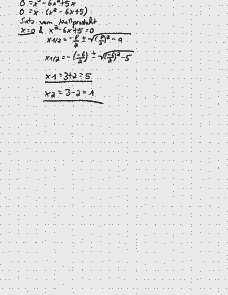 0 = x³ - 6x² + 5x
0 = x · (x² - 6x + 5)
Satz vom Nullprodukt
x=0 & x² - 6x + 5 = 0
x1/2 = - p/2 ± √(p/2)² - q
x1/2 = - (-6/2) ± √(-6/2)² - 5
x1 = 3+2 = 5
x2 = 3-2 = 1